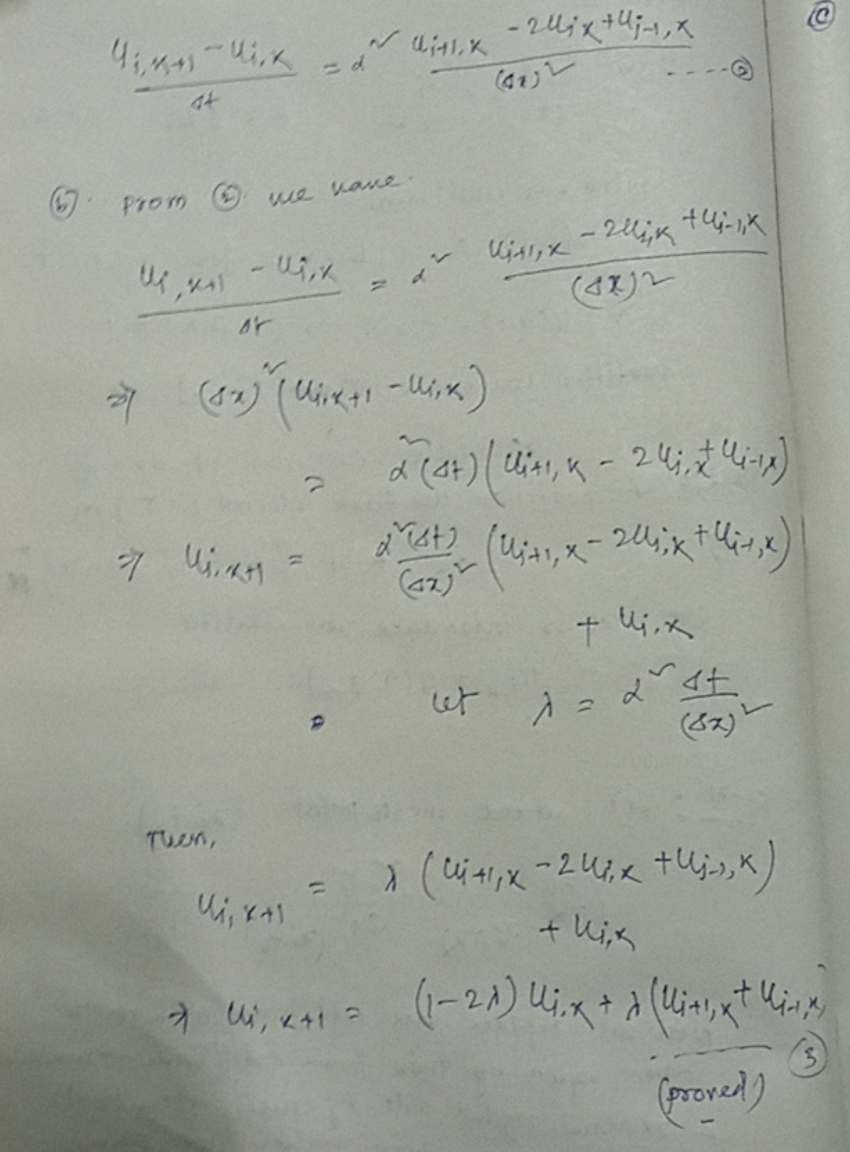 ©
(u_{i,k+1} - u_{i,k}) / Δt = α² (u_{i+1,k} - 2u_{i,k} + u_{i-1,k}) / (Δx)² ----②
ⓑ. From ②. we have.
(u_{i,k+1} - u_{i,k}) / Δt = α² (u_{i+1,k} - 2u_{i,k} + u_{i-1,k}) / (Δx)²
⇒ (Δx)² (u_{i,k+1} - u_{i,k})
= α² (Δt) (u_{i+1,k} - 2u_{i,k} + u_{i-1,k})
⇒ u_{i,k+1} = α²(Δt) / (Δx)² (u_{i+1,k} - 2u_{i,k} + u_{i-1,k})
+ u_{i,k}
Let λ = α² Δt / (Δx)²
Then,
u_{i,k+1} = λ (u_{i+1,k} - 2u_{i,k} + u_{i-1,k})
+ u_{i,k}
⇒ u_{i,k+1} = (1-2λ) u_{i,k} + λ (u_{i+1,k} + u_{i-1,k})
③
(proved)